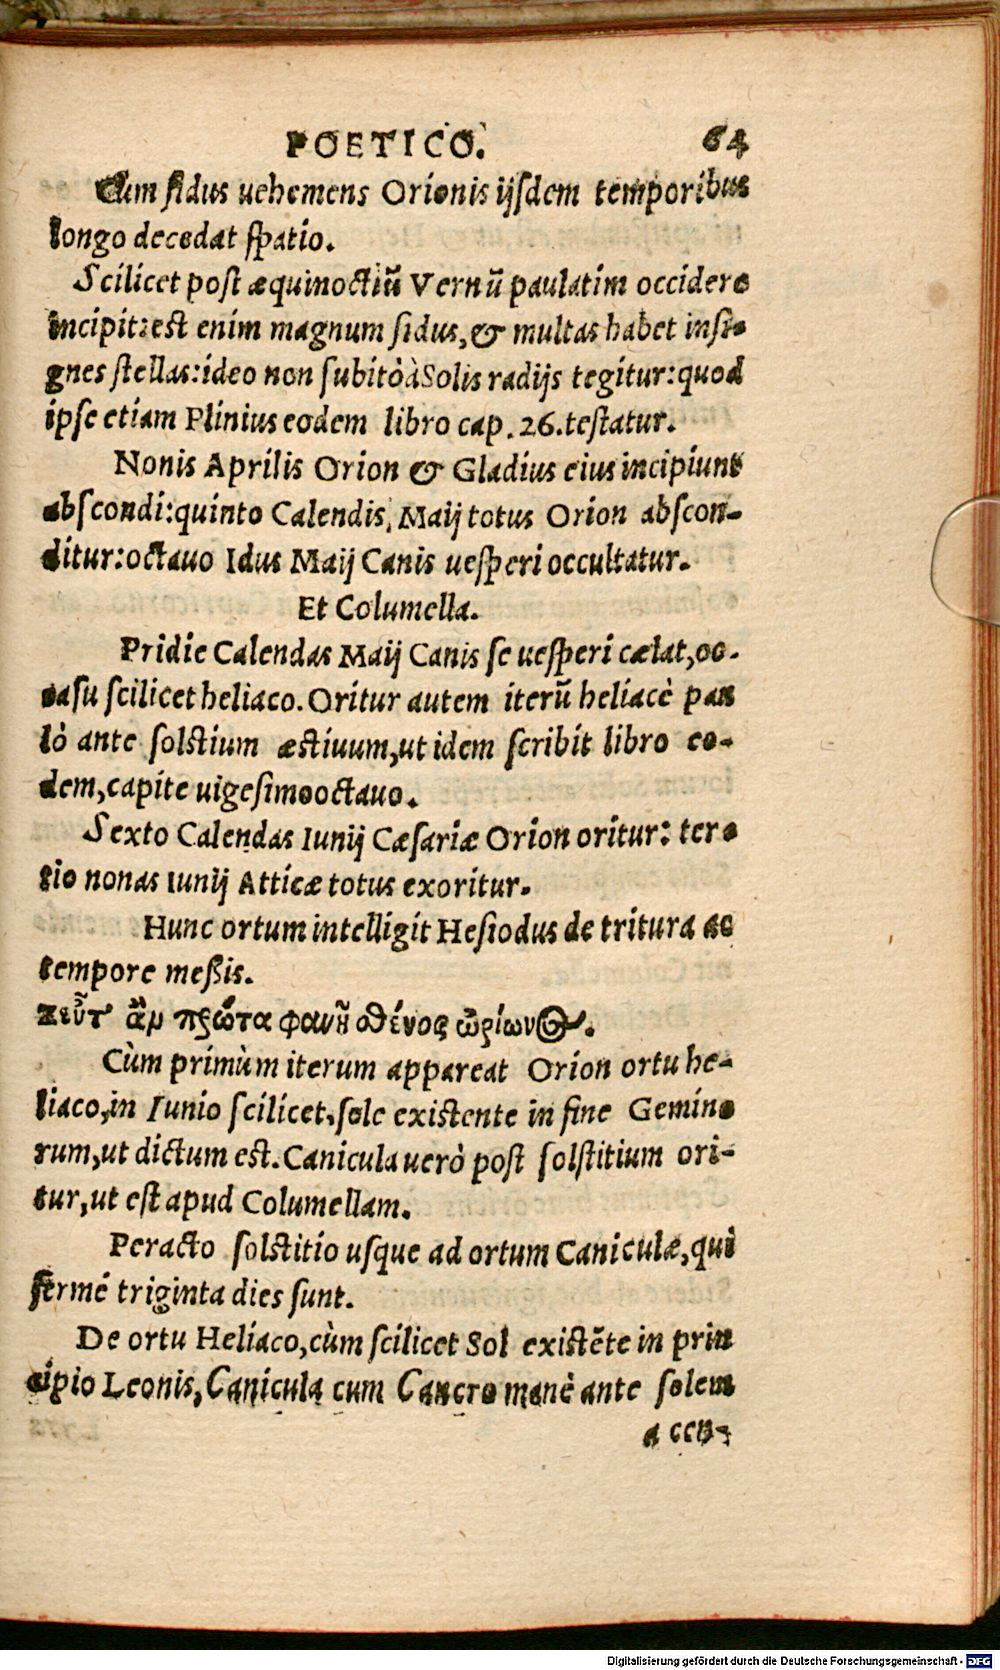 POETICO. 64
Cum sidus uehemens Orionis ijsdem temporibus
longo decedat spatio.
Scilicet post æquinoctiũ Vernũ paulatim occidere
incipit: est enim magnum sidus, & multas habet insi-
gnes stellas: ideo non subitò à Solis radijs tegitur: quod
ipse etiam Plinius eodem libro cap. 26. testatur.
Nonis Aprilis Orion & Gladius eius incipiunt
abscondi: quinto Calendis, Maij totus Orion abscon-
ditur: octauo Idus Maij Canis uesperi occultatur.
Et Columella.
Pridie Calendas Maij Canis se uesperi cælat, oc-
casu scilicet heliaco. Oritur autem iterũ heliacè pau
lò ante solstium æstiuum, ut idem scribit libro eo-
dem, capite uigesimooctauo.
Sexto Calendas Iunij Cæsariæ Orion oritur: ter-
tio nonas Iunij Atticæ totus exoritur.
Hunc ortum intelligit Hesiodus de tritura ac
tempore meßis.
Σεῦτ' ἂμ πρῶτα φανῇ σθένος ὠρίωνος.
Cùm primùm iterum appareat Orion ortu he-
liaco, in Iunio scilicet, sole existente in fine Gemino
rum, ut dictum est. Canicula uerò post solstitium ori-
tur, ut est apud Columellam.
Peracto solstitio usque ad ortum Caniculæ, qui
fermé triginta dies sunt.
De ortu Heliaco, cùm scilicet Sol existẽte in prin
cipio Leonis, Canicula cum Cancro manè ante solem
accen-
Digitalisierung gefördert durch die Deutsche Forschungsgemeinschaft - DFG